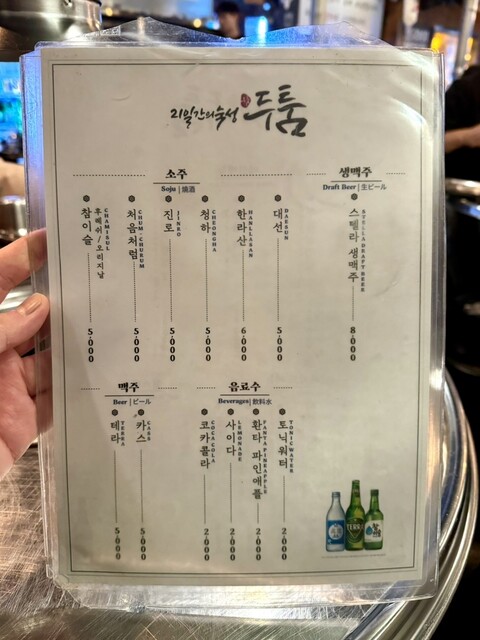 21일간의숙성 두툼
소주
Soju | 焼酒
참이슬
후레쉬/오리지날
CHAMISUL
5,000
처음처럼
CHUM-CHURUM
5,000
진로
JINRO
5,000
청하
CHEONGHA
5,000
한라산
HANLLASAN
6,000
대선
DAESUN
5,000
생맥주
Draft Beer | 生ビール
스텔라 생맥주
STELLA DRAFT BEER
8,000
맥주
Beer | ビール
테라
TERRA
5,000
카스
CASS
5,000
음료수
Beverages | 飲料水
코카콜라
COCA COLA
2,000
사이다
LEMONADE
2,000
환타 파인애플
FANTA PINEAPPLE
2,000
토닉워터
TONIC WATER
2,000
TERRA